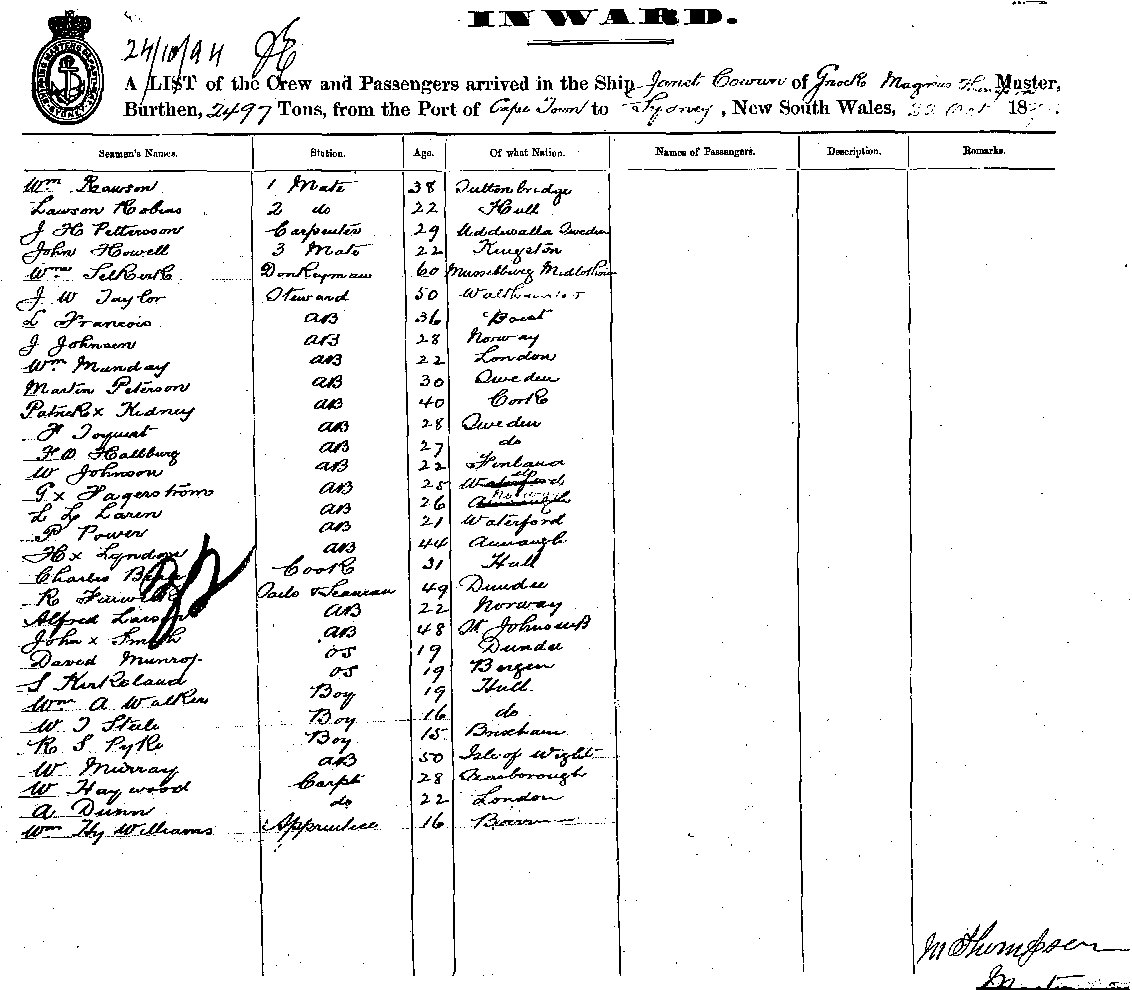 INWARD.
24/10/94
A LIST of the Crew and Passengers arrived in the Ship Janet Cowan of Magnus Muster,
Burthen, 2497 Tons, from the Port of Cape Town to Sydney, New South Wales, Oct 18
Seamen's Names. Station. Age. Of what Nation. Names of Passengers. Description. Remarks.
Wm Rawson 1 Mate 38 Tuttonbridge
Lawson Robins 2 do 22 Hull
J H Petterson Carpenter 29 Uddewalla Sweden
John Howell 3 Mate 22 Kingston
Wm Selkirk Donkeyman 60
J W Taylor Steward 50
L Francois AB 36
J Johnsen AB 28 Norway
Wm Munday AB 22 London
Martin Peterson AB 30 Sweden
Patrick x Kidney AB 40 Cork
F AB 28 Sweden
F O Hallburg AB 27 do
W Johnson AB 22 Finland
G x Fagerstrom AB 25 Waterford
L L Laren AB 26 Norway
P Power AB 21 Waterford
H x Lyndon AB 44
Charles Cook 31 Hull
R Sails & Seaman 49 Dundee
Alfred Larsen AB 22 Norway
John x Smith AB 48 St Johns NB
David Munro OS 19 Dundee
S Kirkeland OS 19 Bergen
Wm A Walker Boy 19 Hull
W T Steele Boy 16 do
R S Pyke Boy 15 Brixham
W Murray AB 50 Isle of Wight
W Haywood Carpt 28 Scarborough
A Dunn do 22 London
Wm Hy Williams Apprentice 16
M Thompson
Master